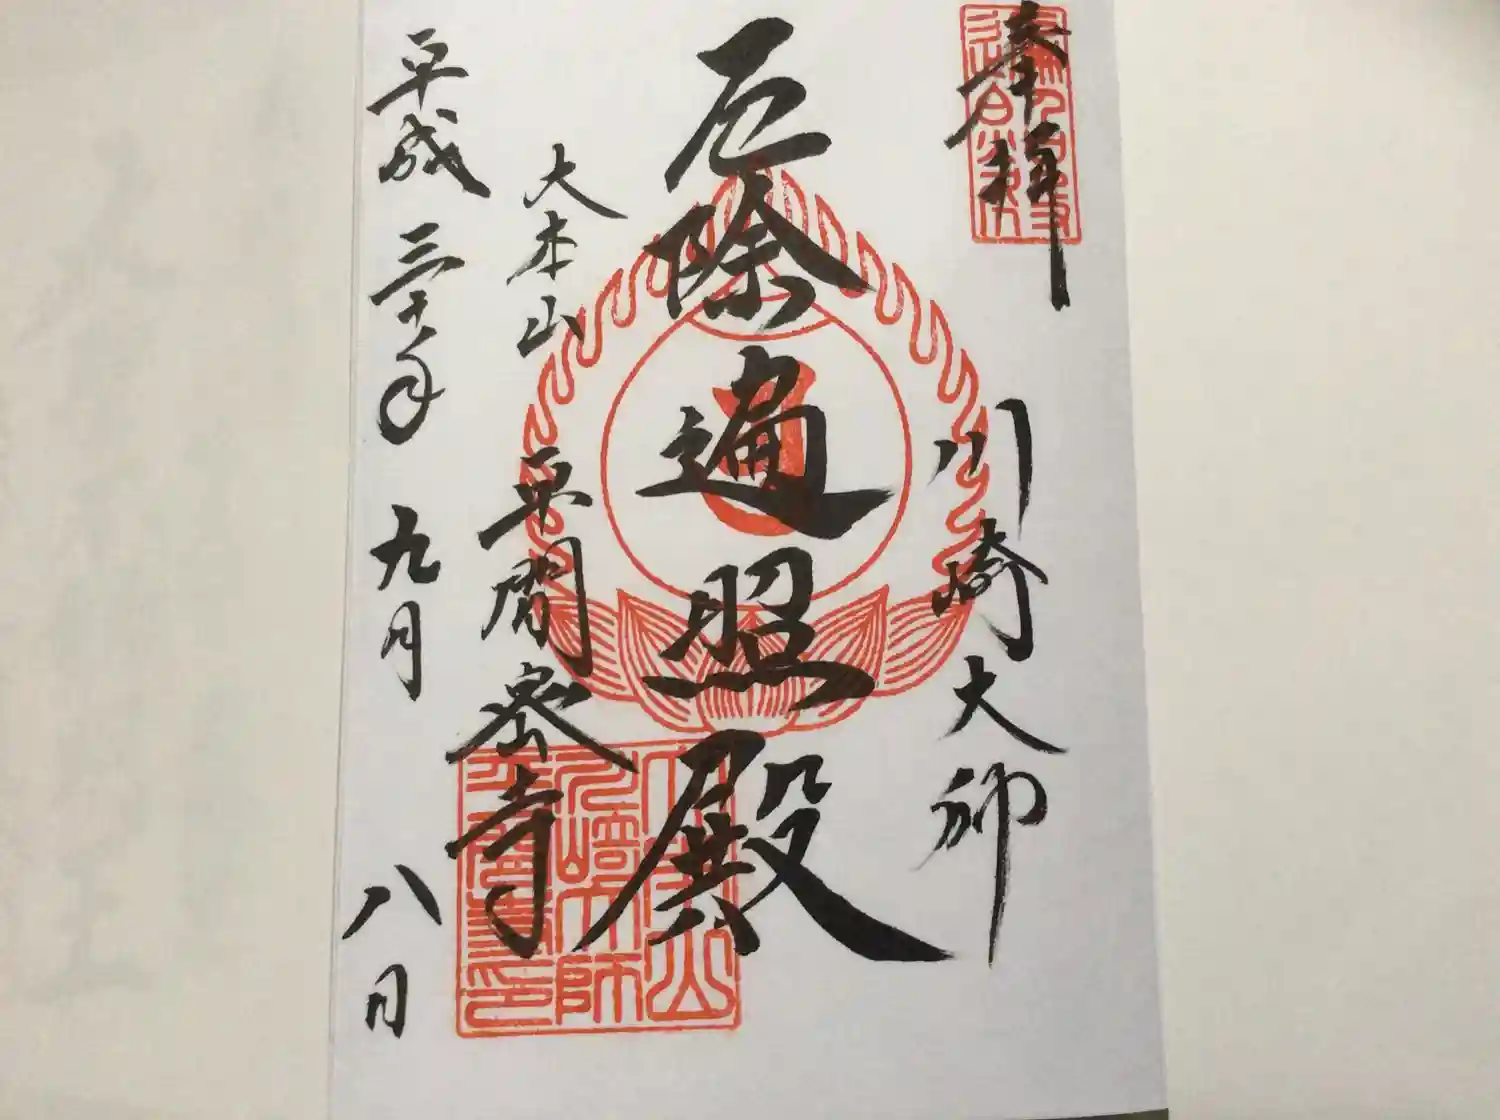 奉拝
川崎大師
厄除遍照殿
大本山
平間寺
平成三十年
九月
八日